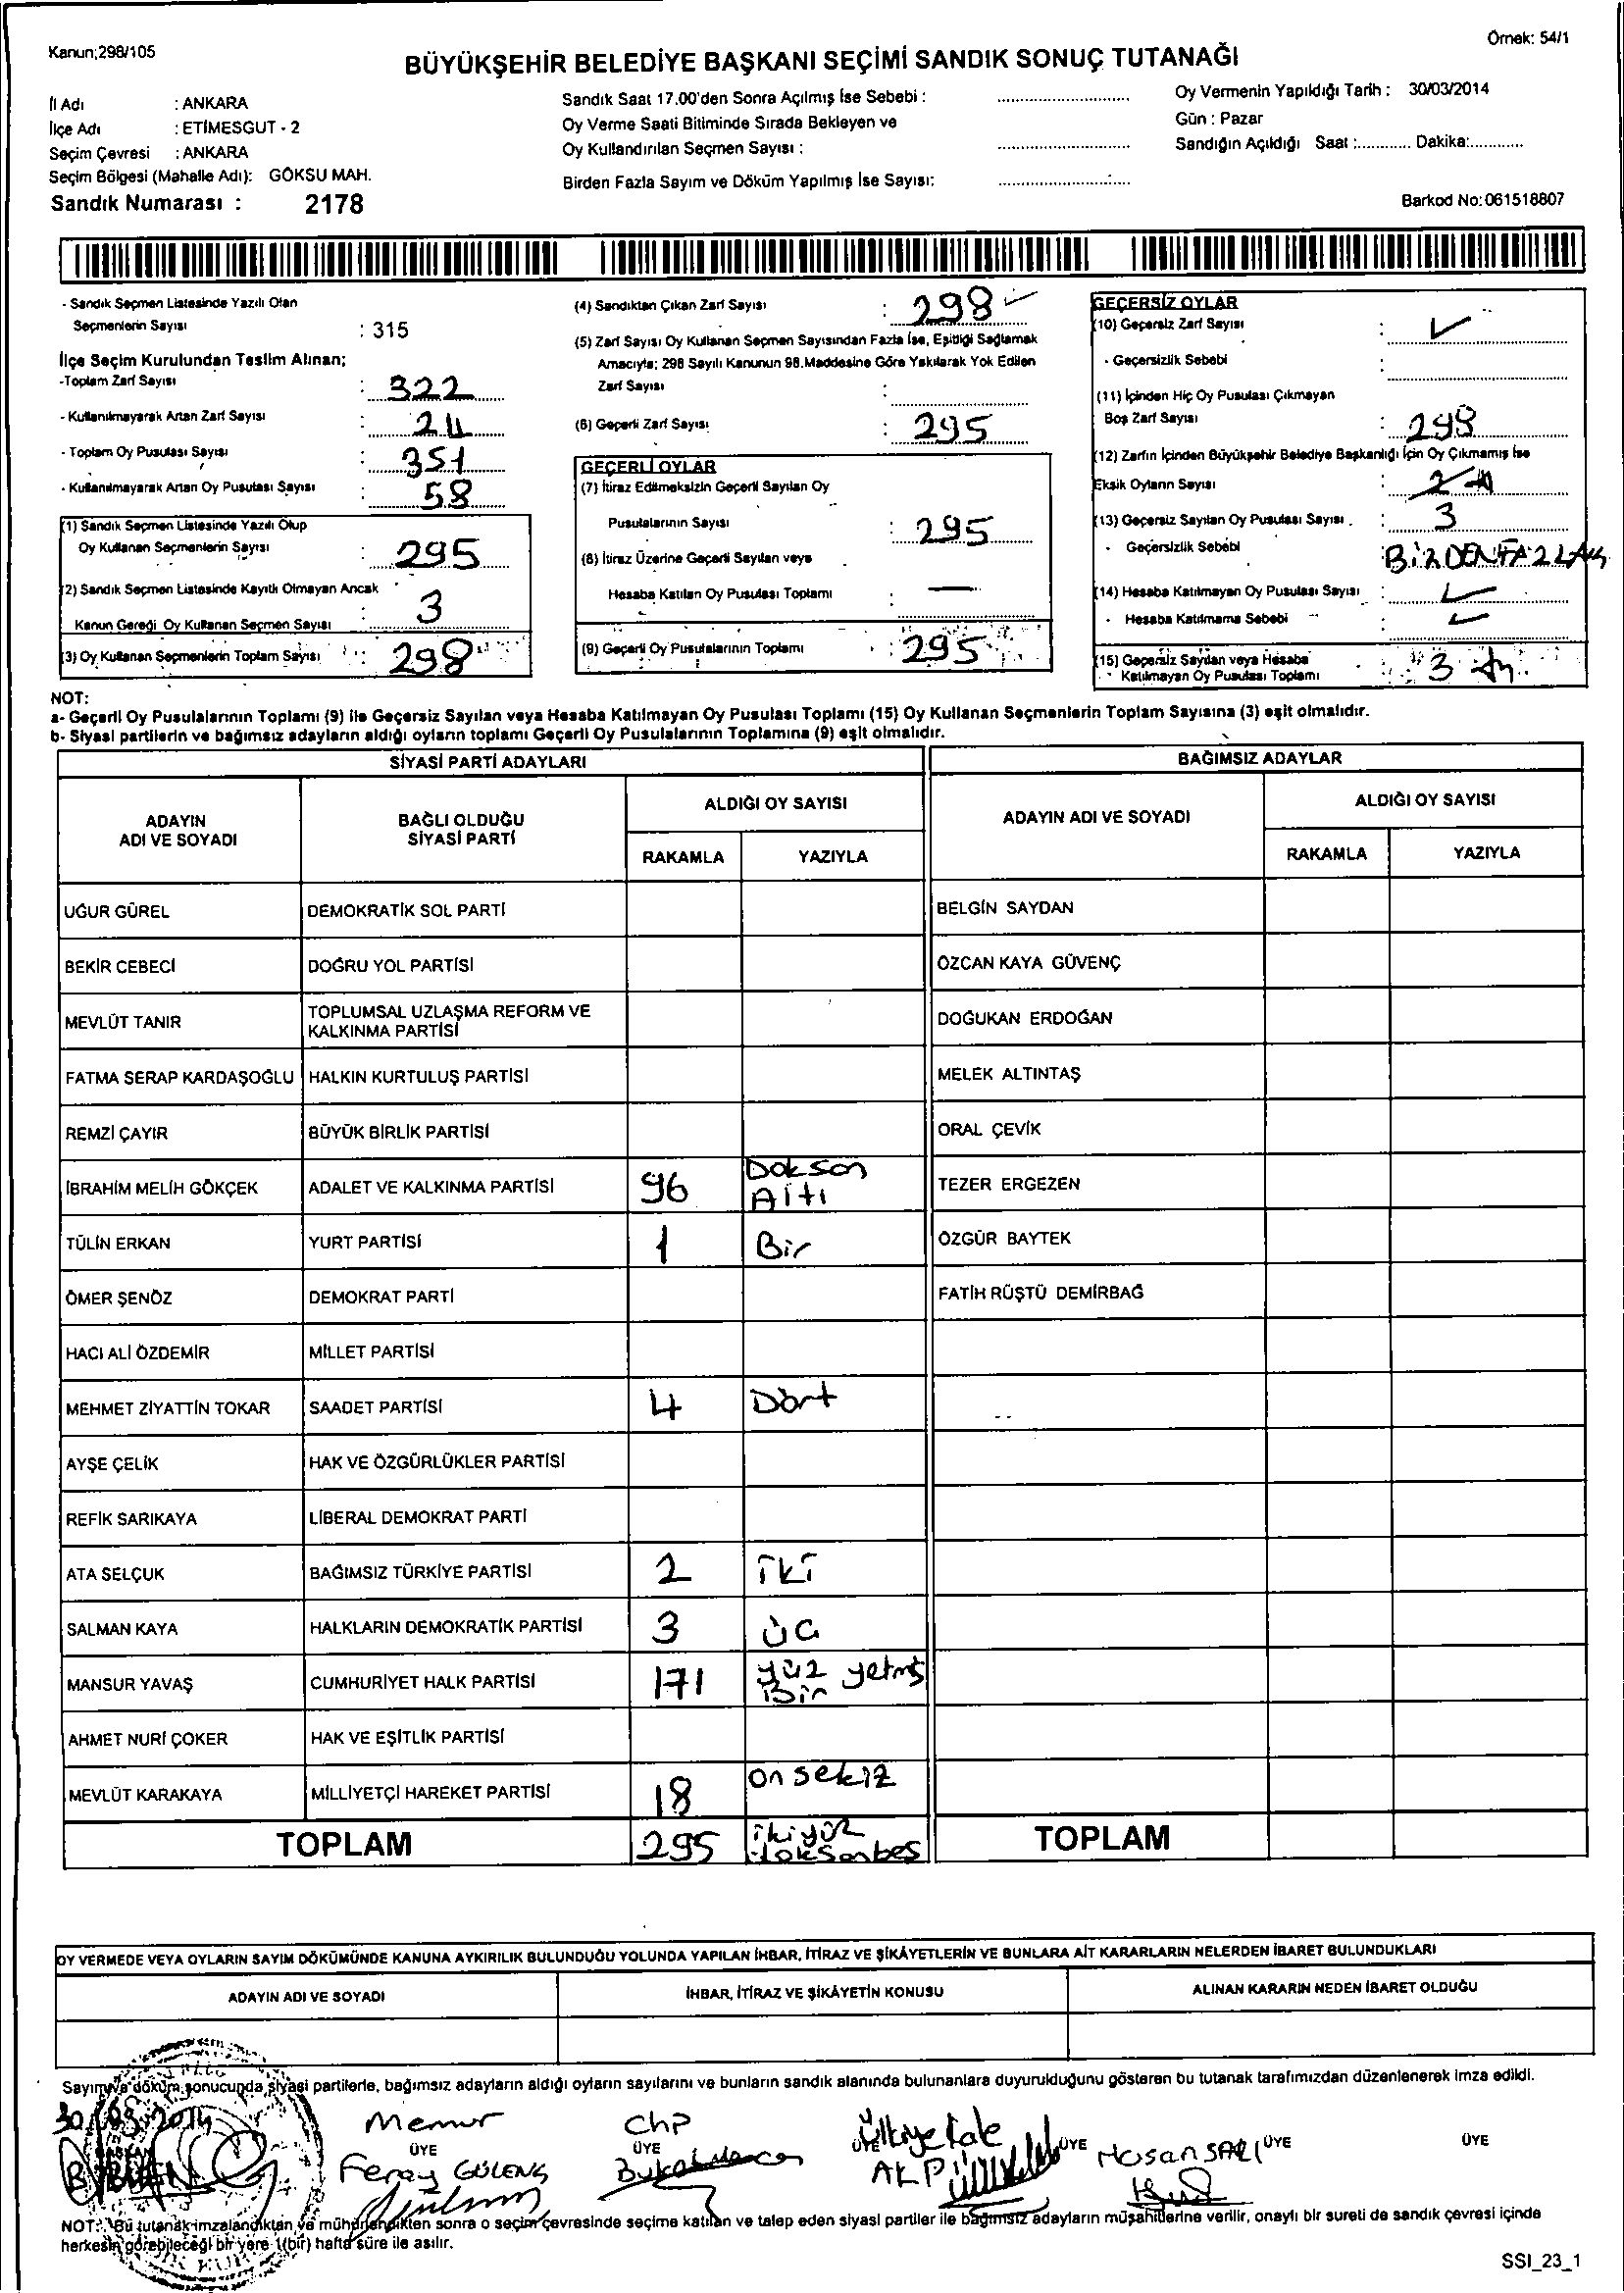 Kanun;298/105
Örnek: 54/1
BÜYÜKŞEHİR BELEDİYE BAŞKANI SEÇİMİ SANDIK SONUÇ TUTANAĞI
İl Adı : ANKARA
İlçe Adı : ETİMESGUT - 2
Seçim Çevresi : ANKARA
Seçim Bölgesi (Mahalle Adı): GÖKSU MAH.
Sandık Numarası : 2178
Sandık Saat 17.00'den Sonra Açılmış İse Sebebi :
Oy Verme Saati Bitiminde Sırada Bekleyen ve
Oy Kullandırılan Seçmen Sayısı :
Birden Fazla Sayım ve Döküm Yapılmış İse Sayısı:
Oy Vermenin Yapıldığı Tarih : 30/03/2014
Gün : Pazar
Sandığın Açıldığı Saat :............ Dakika:............
Barkod No: 061518807
- Sandık Seçmen Listesinde Yazılı Olan
Seçmenlerin Sayısı : 315
İlçe Seçim Kurulundan Teslim Alınan;
-Toplam Zarf Sayısı : 322
- Kullanılmayarak Artan Zarf Sayısı : 24
- Toplam Oy Pusulası Sayısı : 351
- Kullanılmayarak Artan Oy Pusulası Sayısı : 58
(1) Sandık Seçmen Listesinde Yazılı Olup
Oy Kullanan Seçmenlerin Sayısı : 295
(2) Sandık Seçmen Listesinde Kayıtlı Olmayan Ancak
Kanun Gereği Oy Kullanan Seçmen Sayısı : 3
(3) Oy Kullanan Seçmenlerin Toplam Sayısı : 298
(4) Sandıktan Çıkan Zarf Sayısı : 298
(5) Zarf Sayısı Oy Kullanan Seçmen Sayısından Fazla İse, Eşitliği Sağlamak
Amacıyla; 298 Sayılı Kanunun 98.Maddesine Göre Yakılarak Yok Edilen
Zarf Sayısı :
(6) Geçerli Zarf Sayısı : 295
GEÇERLİ OYLAR
(7) İtiraz Edilmeksizin Geçerli Sayılan Oy
Pusulalarının Sayısı : 295
(8) İtiraz Üzerine Geçerli Sayılan veya
Hesaba Katılan Oy Pusulası Toplamı : —
(9) Geçerli Oy Pusulalarının Toplamı : 295
GEÇERSİZ OYLAR
(10) Geçersiz Zarf Sayısı :
- Geçersizlik Sebebi :
(11) İçinden Hiç Oy Pusulası Çıkmayan
Boş Zarf Sayısı : 298
(12) Zarfın İçinden Büyükşehir Belediye Başkanlığı İçin Oy Çıkmamış İse
Eksik Oyların Sayısı :
(13) Geçersiz Sayılan Oy Pusulası Sayısı : 3
- Geçersizlik Sebebi : BİRDEN FAZLA
(14) Hesaba Katılmayan Oy Pusulası Sayısı :
- Hesaba Katılmama Sebebi :
(15) Geçersiz Sayılan veya Hesaba
Katılmayan Oy Pusulası Toplamı : 3
NOT:
a- Geçerli Oy Pusulalarının Toplamı (9) ile Geçersiz Sayılan veya Hesaba Katılmayan Oy Pusulası Toplamı (15) Oy Kullanan Seçmenlerin Toplam Sayısına (3) eşit olmalıdır.
b- Siyasi partilerin ve bağımsız adayların aldığı oyların toplamı Geçerli Oy Pusulalarının Toplamına (9) eşit olmalıdır.
SİYASİ PARTİ ADAYLARI
BAĞIMSIZ ADAYLAR
ADAYIN ADI VE SOYADI
BAĞLI OLDUĞU SİYASİ PARTİ
ALDIĞI OY SAYISI
RAKAMLA YAZIYLA
ADAYIN ADI VE SOYADI
ALDIĞI OY SAYISI
RAKAMLA YAZIYLA
UĞUR GÜREL DEMOKRATİK SOL PARTİ BELGİN SAYDAN
BEKİR CEBECİ DOĞRU YOL PARTİSİ ÖZCAN KAYA GÜVENÇ
MEVLÜT TANIR TOPLUMSAL UZLAŞMA REFORM VE KALKINMA PARTİSİ DOĞUKAN ERDOĞAN
FATMA SERAP KARDAŞOĞLU HALKIN KURTULUŞ PARTİSİ MELEK ALTINTAŞ
REMZİ ÇAYIR BÜYÜK BİRLİK PARTİSİ ORAL ÇEVİK
İBRAHİM MELİH GÖKÇEK ADALET VE KALKINMA PARTİSİ 96 Dokson Altı TEZER ERGEZEN
TÜLİN ERKAN YURT PARTİSİ 1 Bir ÖZGÜR BAYTEK
ÖMER ŞENÖZ DEMOKRAT PARTİ FATİH RÜŞTÜ DEMİRBAĞ
HACI ALİ ÖZDEMİR MİLLET PARTİSİ
MEHMET ZİYATTİN TOKAR SAADET PARTİSİ 4 Dört
AYŞE ÇELİK HAK VE ÖZGÜRLÜKLER PARTİSİ
REFİK SARIKAYA LİBERAL DEMOKRAT PARTİ
ATA SELÇUK BAĞIMSIZ TÜRKİYE PARTİSİ 2 İKİ
SALMAN KAYA HALKLARIN DEMOKRATİK PARTİSİ 3 üç
MANSUR YAVAŞ CUMHURİYET HALK PARTİSİ 171 yüz yetmiş Bir
AHMET NURİ ÇOKER HAK VE EŞİTLİK PARTİSİ
MEVLÜT KARAKAYA MİLLİYETÇİ HAREKET PARTİSİ 18 on sekiz
TOPLAM 295 ikiyüz doksanbeş TOPLAM
OY VERMEDE VEYA OYLARIN SAYIM DÖKÜMÜNDE KANUNA AYKIRILIK BULUNDUĞU YOLUNDA YAPILAN İHBAR, İTİRAZ VE ŞİKÂYETLERİN VE BUNLARA AİT KARARLARIN NELERDEN İBARET BULUNDUKLARI
ADAYIN ADI VE SOYADI İHBAR, İTİRAZ VE ŞİKÂYETİN KONUSU ALINAN KARARIN NEDEN İBARET OLDUĞU
Sayım ve döküm sonucunda siyasi partilerle, bağımsız adayların aldığı oyların sayılarını ve bunların sandık alanında bulunanlara duyurulduğunu gösteren bu tutanak tarafımızdan düzenlenerek imza edildi.
30/03/2014 Memur Chp Ülkiye Kale
BAŞKAN ÜYE ÜYE ÜYE ÜYE ÜYE ÜYE
Feray GÜLENÇ AKP Hasan SARI
NOT: Bu tutanak imzalandıktan ve mühürlendikten sonra o seçim çevresinde seçime katılan ve talep eden siyasi partiler ile bağımsız adayların müşahitlerine verilir, onaylı bir sureti de sandık çevresi içinde
herkesin görebileceği bir yere 1(bir) hafta süre ile asılır.
SSI_23_1